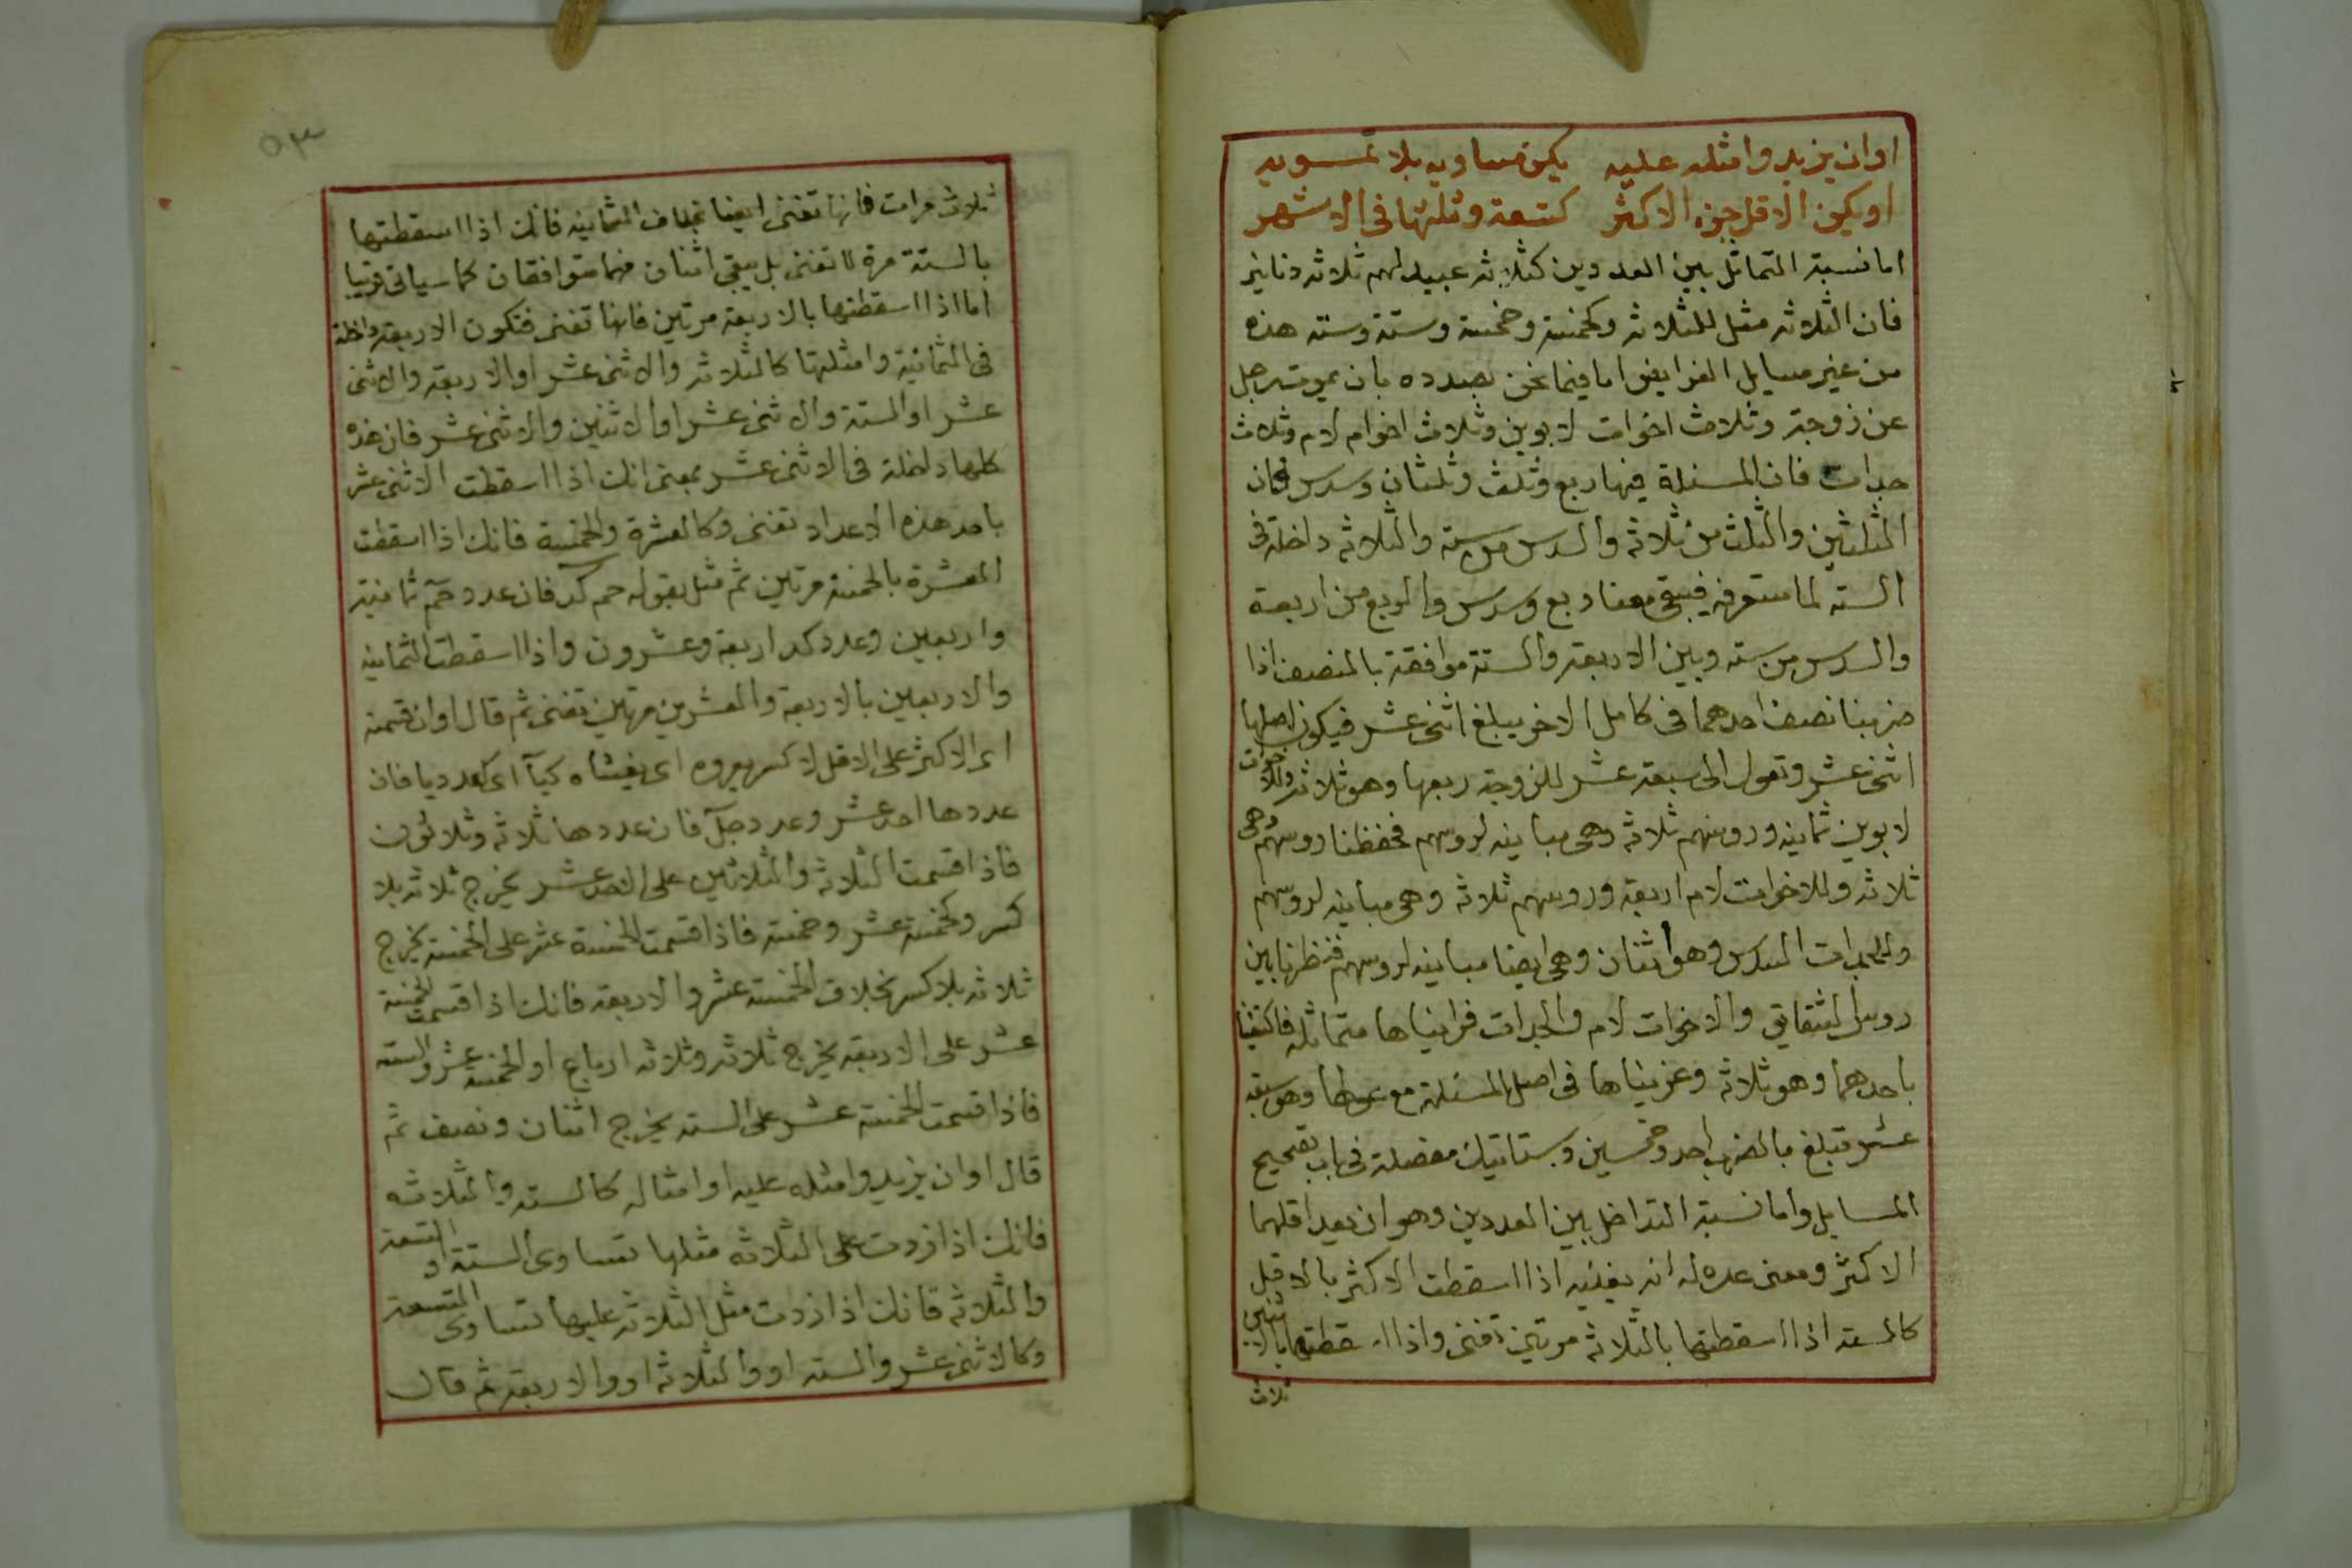 اوان يزيدوا مثله عليه يكن مساويه بلا تمويه
او يكن الاقل جزء الاكثر كتسعة وثلثها في الاشهر
اما نسبة التماثل بين العددين كثلاثه عبيد لهم ثلاثه دنانير
فان الثلاثه مثل للثلاثه وكخمسة وخمسة وستة وسته هذه
من غير مسايل الفرايض اما فيما نحن بصدده بان يموت رجل
عن زوجة وثلاث اخوات لابوين وثلاث اخوات لام وثلاث
جدات فان المسئلة فيها ربع وثلث وثلثان وسدس فان
الثلثين والثلث من ثلاثه والسدس من سته والثلاثه داخلة في
السته لما ستعرفه فيبقى معنا ربع وسدس والربع من اربعة
والسدس من سته وبين الاربعة والستة موافقة بالنصف اذا
ضربنا نصف احدهما في كامل الاخر يبلغ اثنى عشر فيكون اصلها
اثنى عشر وتعول الى سبعة عشر للزوجة ربعها وهو ثلاثه وللاخوات
لابوين ثمانيه وروسهم ثلاثه وهي مباينه لروسهم فحفظنا روسهم وهي
ثلاثه وللاخوات لام اربعة وروسهم ثلاثه وهي مباينه لروسهم
وللجدات السدس وهو اثنان وهي ايضا مباينه لروسهم فنظرنا بين
روس الشقايق والاخوات لام والجدات فرايناها متماثله فاكتفينا
باحدهما وهو ثلاثه وضربناها في اصل المسئلة مع عولها وهو سبعة
عشر فتبلغ بالضرب احد وخمسين وستاتيك مفصلة في باب تصحيح
المسايل واما نسبة التداخل بين العددين وهو ان يعد اقلهما
الاكثر ومعنى عده له انه يفنيه اذا اسقطت الاكثر بالاقل
كالسته اذا اسقطتها بالثلاثه مرتين تفنى واذا اسقطتها بالاثنين
ثلاث
٥٣
ثلاث مرات فانها تفنى ايضا بخلاف الثمانيه فانك اذا اسقطتها
بالستة مرة لا تفنى بل يبقى اثنان فهما متوافقان كما سياتي قريبا
اما اذا اسقطتها بالاربعة مرتين فانها تفنى فتكون الاربعة داخلة
في الثمانية وامثلتها كالثلاثه والاثنى عشر او الاربعة والاثنى
عشر او الستة والاثنى عشر او الاثنين والاثنى عشر فان هذه
كلها داخلة في الاثنى عشر بمعنى انك اذا اسقطت الاثنى عشر
باحد هذه الاعداد تفنى وكالعشرة والخمسة فانك اذا اسقطت
العشرة بالخمسة مرتين ثم مثل بقوله حم كد فان عدد حم ثمانية
واربعين وعدد كد اربعة وعشرون واذا اسقطت الثمانيه
والاربعين بالاربعة والعشرين مرتين تفنى ثم قال اوان قسمته
اى الاكثر على الاقل لا كسر يعروه اى يغشاه كيآ اى كعدد يا فان
عددها احد عشر وعدد جل فان عددها ثلاثه وثلاثون
فاذا قسمت الثلاثه والثلاثين على الاحد عشر يخرج ثلاثه بلا
كسر وكخمسة عشر وخمسة فاذا قسمت الخمسة عشر على الخمسة يخرج
ثلاثه بلا كسر بخلاف الخمسة عشر والاربعه فانك اذا قسمت الخمسة
عشر على الاربعه يخرج ثلاثه وثلاثه ارباع او الخمسة عشر والسته
فاذا قسمت الخمسة عشر على السته يخرج اثنان ونصف ثم
قال اوان يزيدوا مثله عليه او امثاله كالسته والثلاثه
فانك اذا زدت على الثلاثه مثلها تساوى الستة او التسعة
والثلاثه فانك اذا زدت مثل الثلاثه عليها تساوى التسعة
وكالاثنى عشر والسته او والثلاثه او والاربعة ثم قال